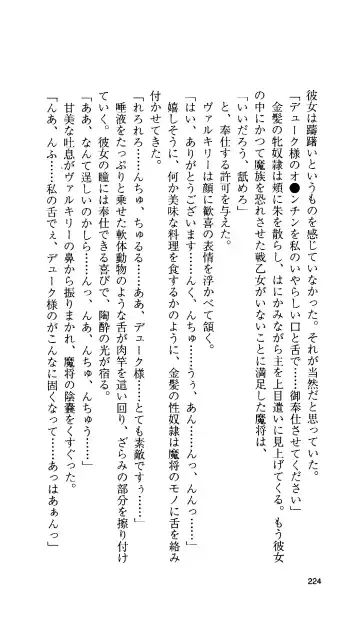 彼女は躊躇いというものを感じていなかった。それが当然だと思っていた。
「デューク様のオ●ンチンを私のいやらしい口と舌で……御奉仕させてください」
金髪の牝奴隷は頬に朱を散らし、はにかみながら主を上目遣いに見上げてくる。もう彼女
の中にかつて魔族を恐れさせた戦乙女がいないことに満足した魔将は、
「いいだろう、舐めろ」
と、奉仕する許可を与えた。
ヴァルキリーは顔に歓喜の表情を浮かべて頷く。
「はい、ありがとうございます……んく、んちゅ……うぅ、あん……んっ、んんっ……」
嬉しそうに、何か美味な料理を食するかのように、金髪の性奴隷は魔将のモノに舌を絡み
付かせてきた。
「れろれろ……んちゅ、ちゅるる……ああ、デューク様……とても素敵ですぅ……」
唾液をたっぷりと乗せた軟体動物のような舌が肉竿を這い回り、ざらみの部分を擦り付け
ていく。彼女の瞳には奉仕できる喜びで、陶酔の光が宿る。
「ああ、なんて逞しいのかしら……んっ、んあ、んちゅ、んちゅう……」
甘美な吐息がヴァルキリーの鼻から振りまかれ、魔将の陰嚢をくすぐった。
「んあ、んふ……私の舌でぇ、デューク様のがこんなに固くなって……あっはあぁんっ」
224